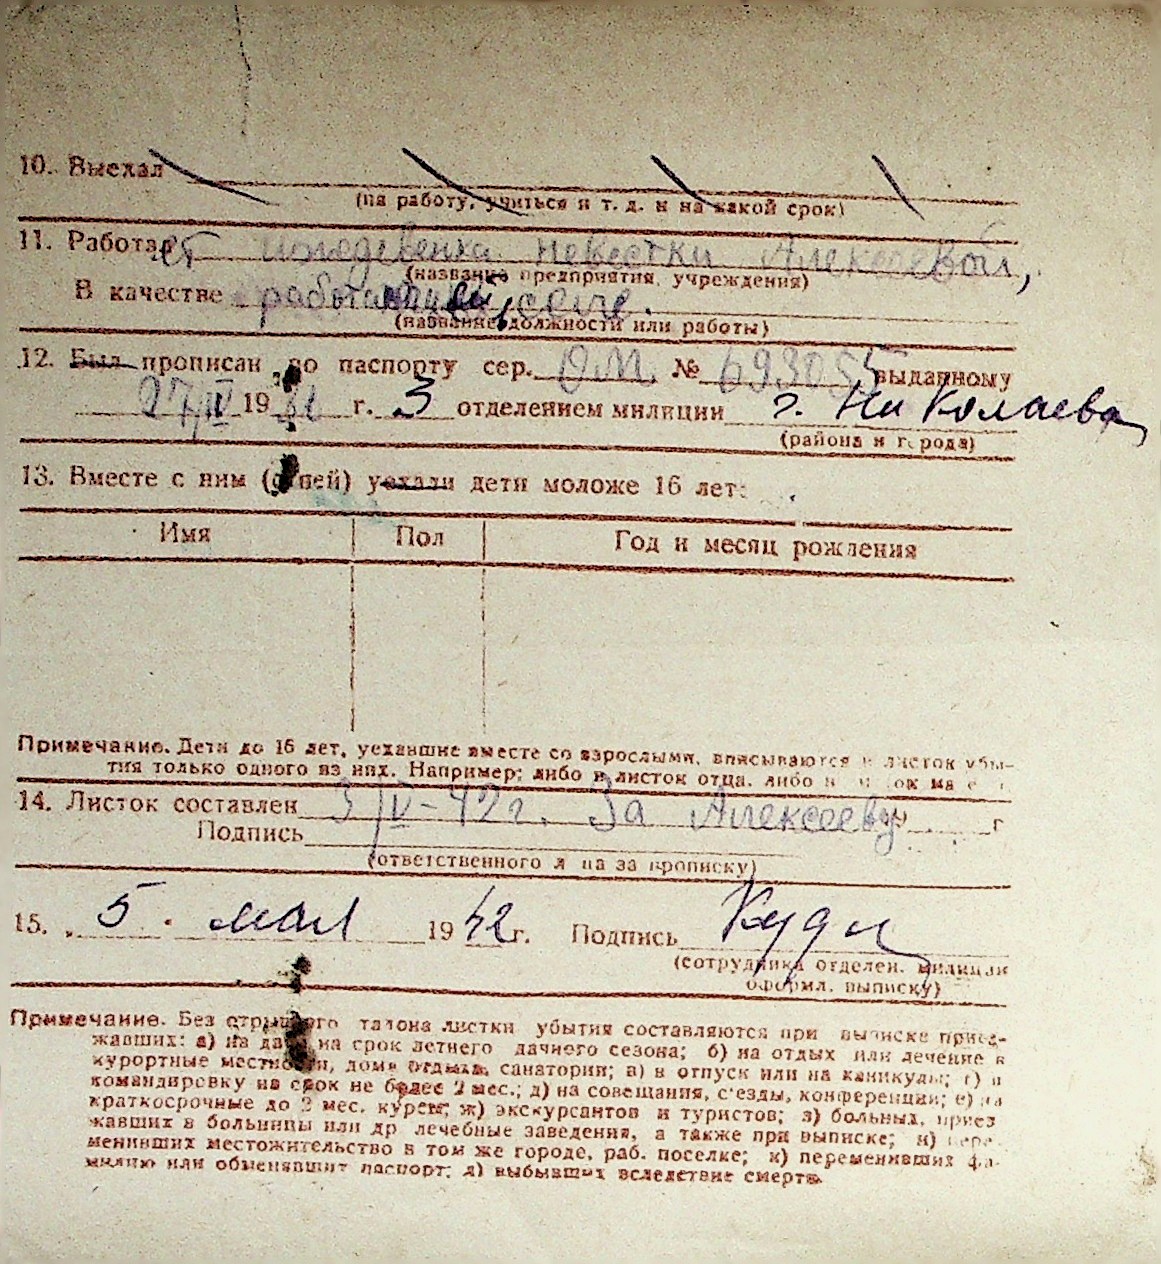 10. Выехал
(на работу, учиться и т. д. и на какой срок)
11. Работает иждевенка невестки Алексеевой,
(название предприятия, учреждения)
В качестве
(название должности или работы)
12. Был прописан по паспорту сер. О.М. № 693055 выданному
27/IV 19 г. 3 отделением милиции г. Николаева
(района и города)
13. Вместе с ним (с ней) уехали дети моложе 16 лет:
Имя Пол Год и месяц рождения
Примечание. Дети до 16 лет, уехавшие вместе со взрослыми, вписываются в листок убы-
тия только одного из них. Например: либо в листок отца, либо в
14. Листок составлен 3/IV-42г. За Алексееву г
Подпись
(ответственного лица за прописку)
15. 5 . мая 1942 г. Подпись
(сотрудника отделен. милиции
оформл. выписку)
Примечание. Без отрывного талона листки убытия составляются при выписке приез-
жавших: а) на дачу на срок летнего дачного сезона; б) на отдых или лечение в
курортные местности, дома отдыха, санатории; в) в отпуск или на каникулы; г) в
командировку на срок не более 2 мес.; д) на совещания, с'езды, конференции; е) на
краткосрочные до 2 мес. курсы; ж) экскурсантов и туристов; з) больных, приез
жавших в больницы или др лечебные заведения, а также при выписке; и) пере-
менивших местожительство в том же городе, раб. поселке; к) переменивших фа-
милию или обменявших паспорт; л) выбывших вследствие смерти.